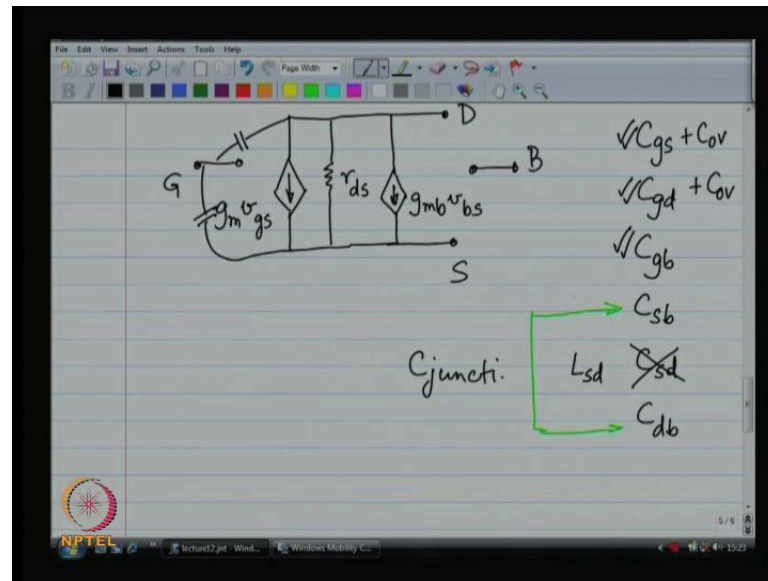 File Edit View Insert Actions Tools Help
Page Width
D
B
G
gm vgs
rds
gmb vbs
S
√Cgs + Cov
√Cgd + Cov
√Cgb
Csb
Cjuncti.
Lsd Csd
Cdb
5/6
NPTEL
lecture12.jnt - Wind...
Windows Mobility C...
15:23